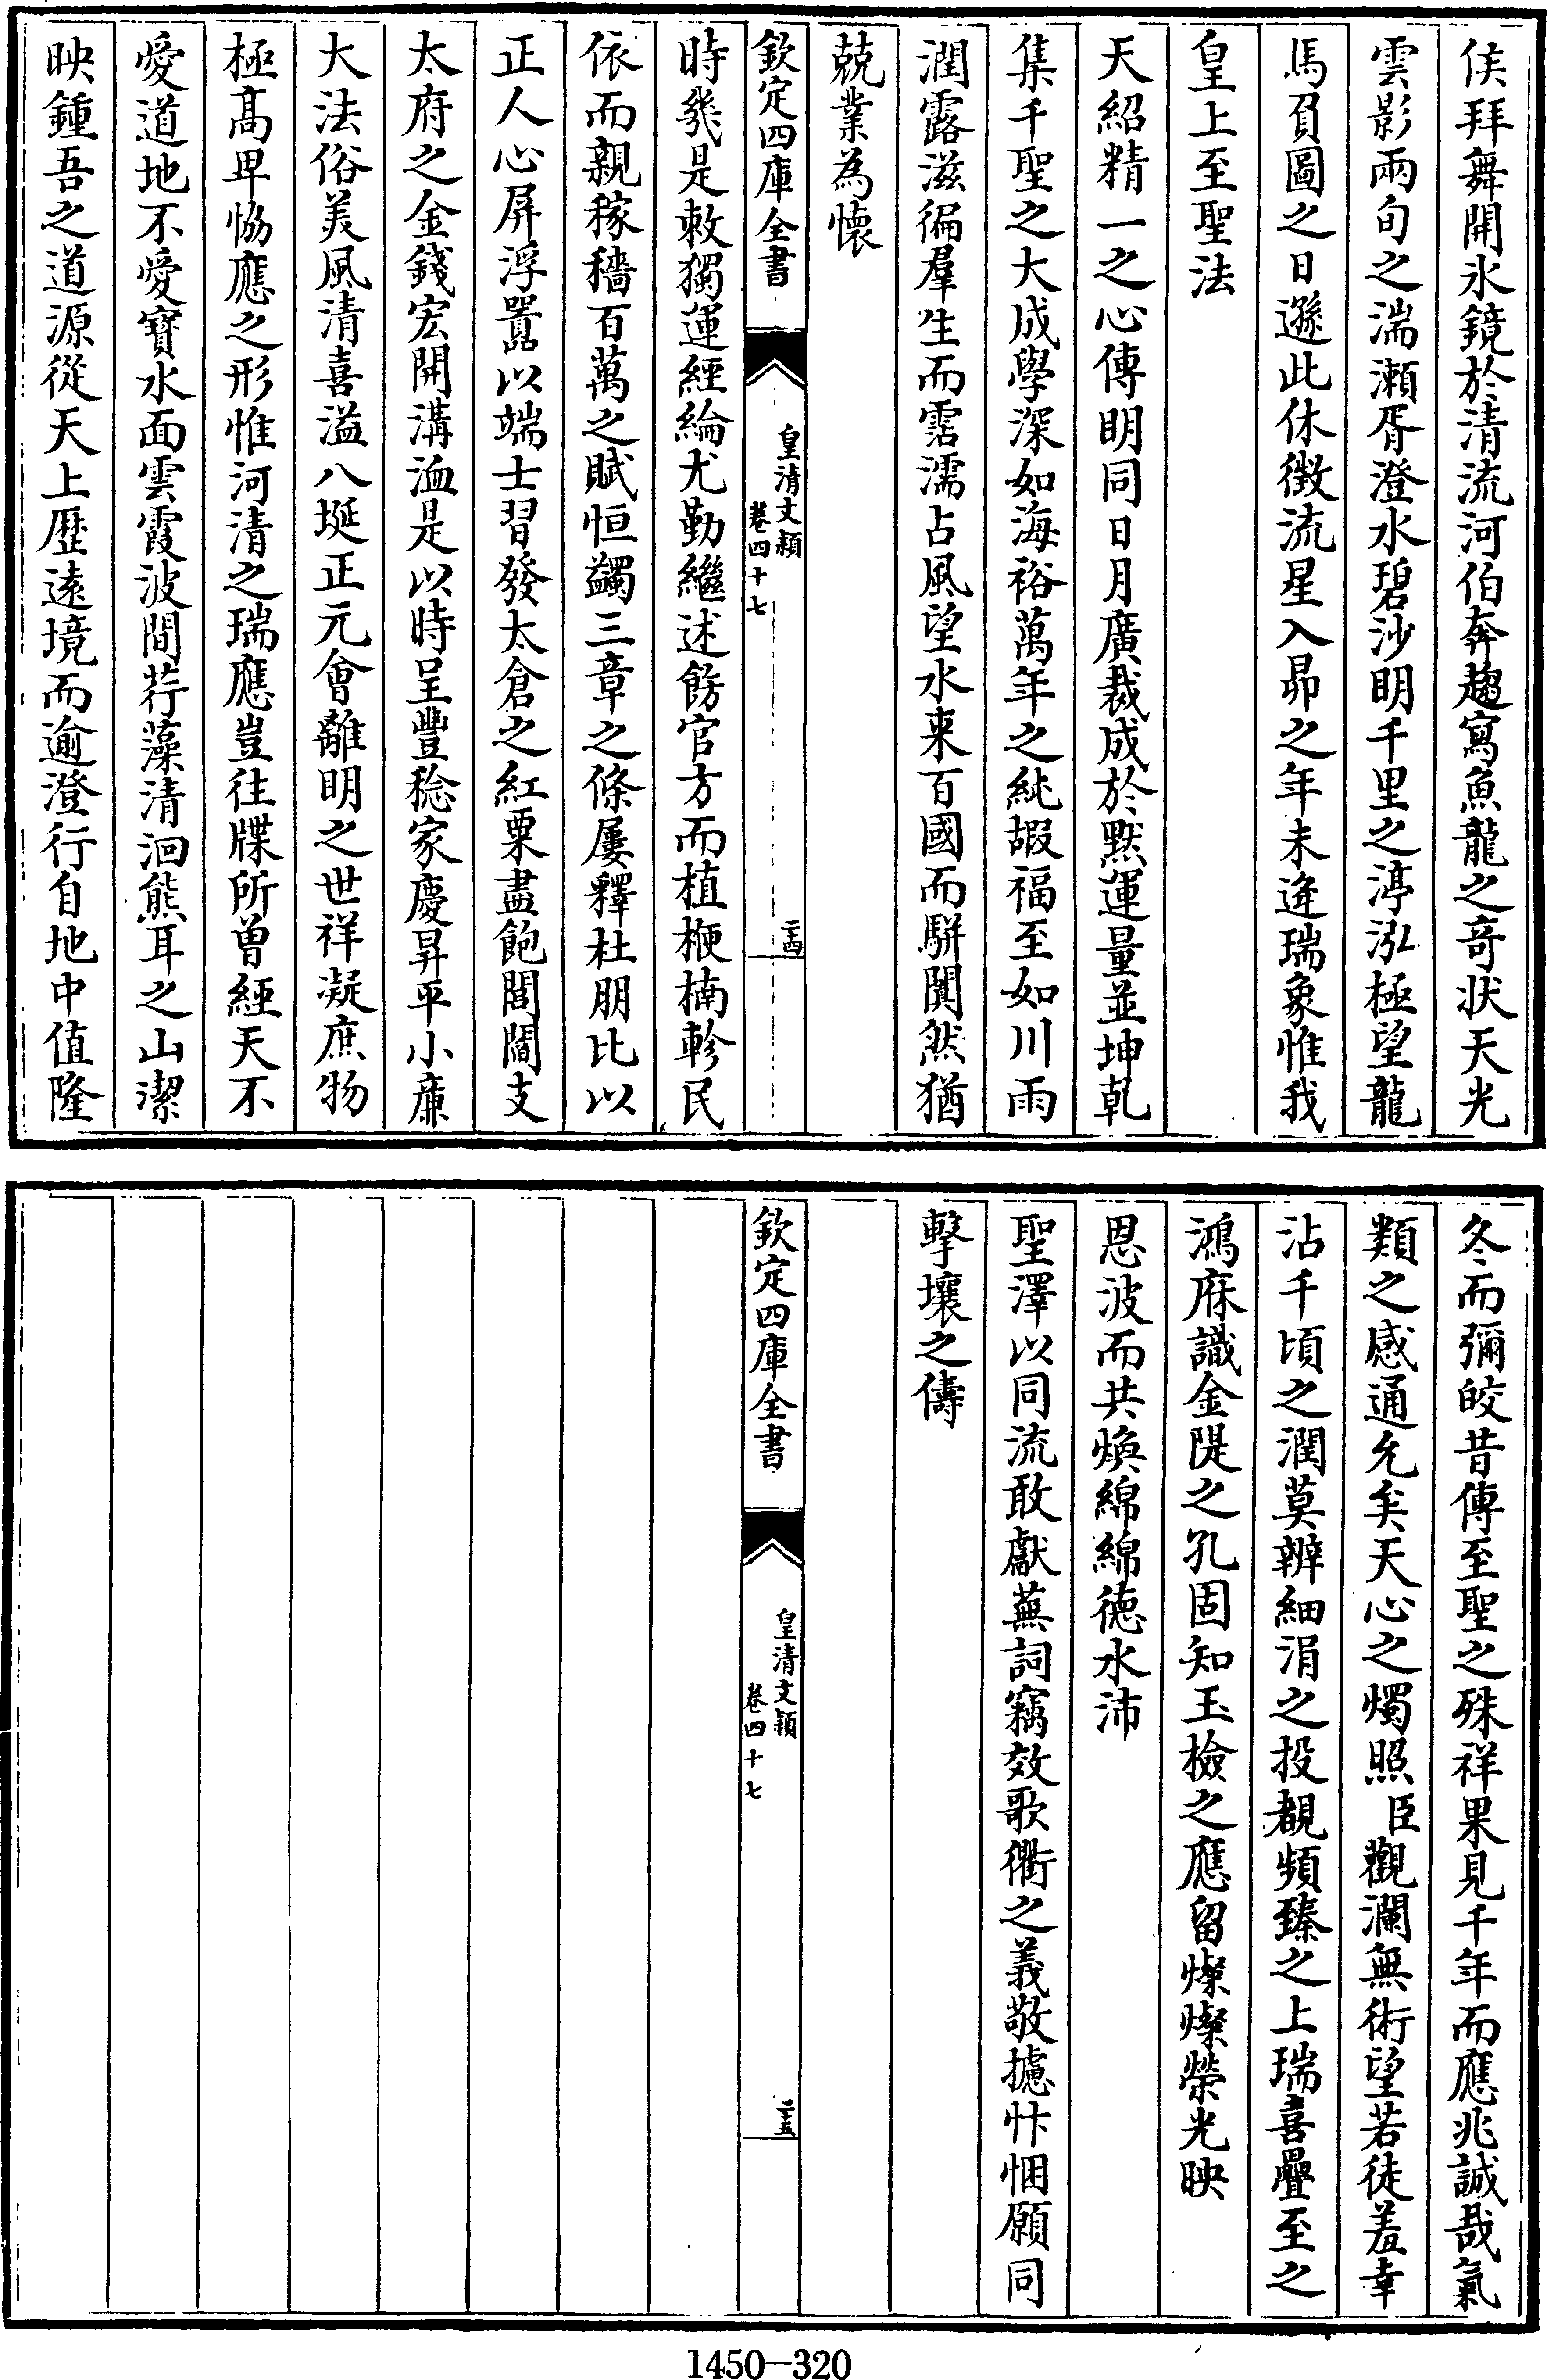 侯拜舞開氷鏡於清流河伯奔趨寫魚龍之竒狀天光
雲影兩旬之湍瀬胥澄水碧沙明千里之渟泓極望龍
馬負圖之日遜此休徴流星入昴之年未逢瑞象惟我
皇上至聖法
天紹精一之心傳明同日月廣裁成於黙運量並坤乾
集千聖之大成學深如海裕萬年之純嘏福至如川雨
潤露滋徧羣生而霑濡占風望水来百國而駢闐然猶
兢業為懷
欽定四庫全書
皇清文穎
卷四十七
二十四
時幾是敕獨運經綸尤勤繼述飭官方而植楩楠軫民
依而親稼穡百萬之賦恒蠲三章之條屢釋杜朋比以
正人心屏浮嚚以端士習發太倉之紅粟盡飽閭閻支
太府之金錢宏開溝洫是以時呈豐稔家慶昇平小亷
大法俗美風清喜溢八埏正元會離明之世祥凝庶物
極髙卑恊應之形惟河清之瑞應豈往牒所曾經天不
愛道地不愛寳水面雲霞波間荇藻清洄熊耳之山潔
映鍾吾之道源從天上歴逺境而逾澄行自地中值隆
冬而彌皎昔傳至聖之殊祥果見千年而應兆誠哉氣
類之感通允矣天心之燭照臣觀瀾無術望若徒羞幸
沾千頃之潤莫辨細涓之投覩頻臻之上瑞喜疊至之
鴻庥識金隄之孔固知玉檢之應留燦燦榮光映
恩波而共煥綿綿德水沛
聖澤以同流敢獻蕪詞竊效歌衢之義敬攄忭悃願同
擊壤之儔
欽定四庫全書
皇清文穎
卷四十七
二十五
1450-320